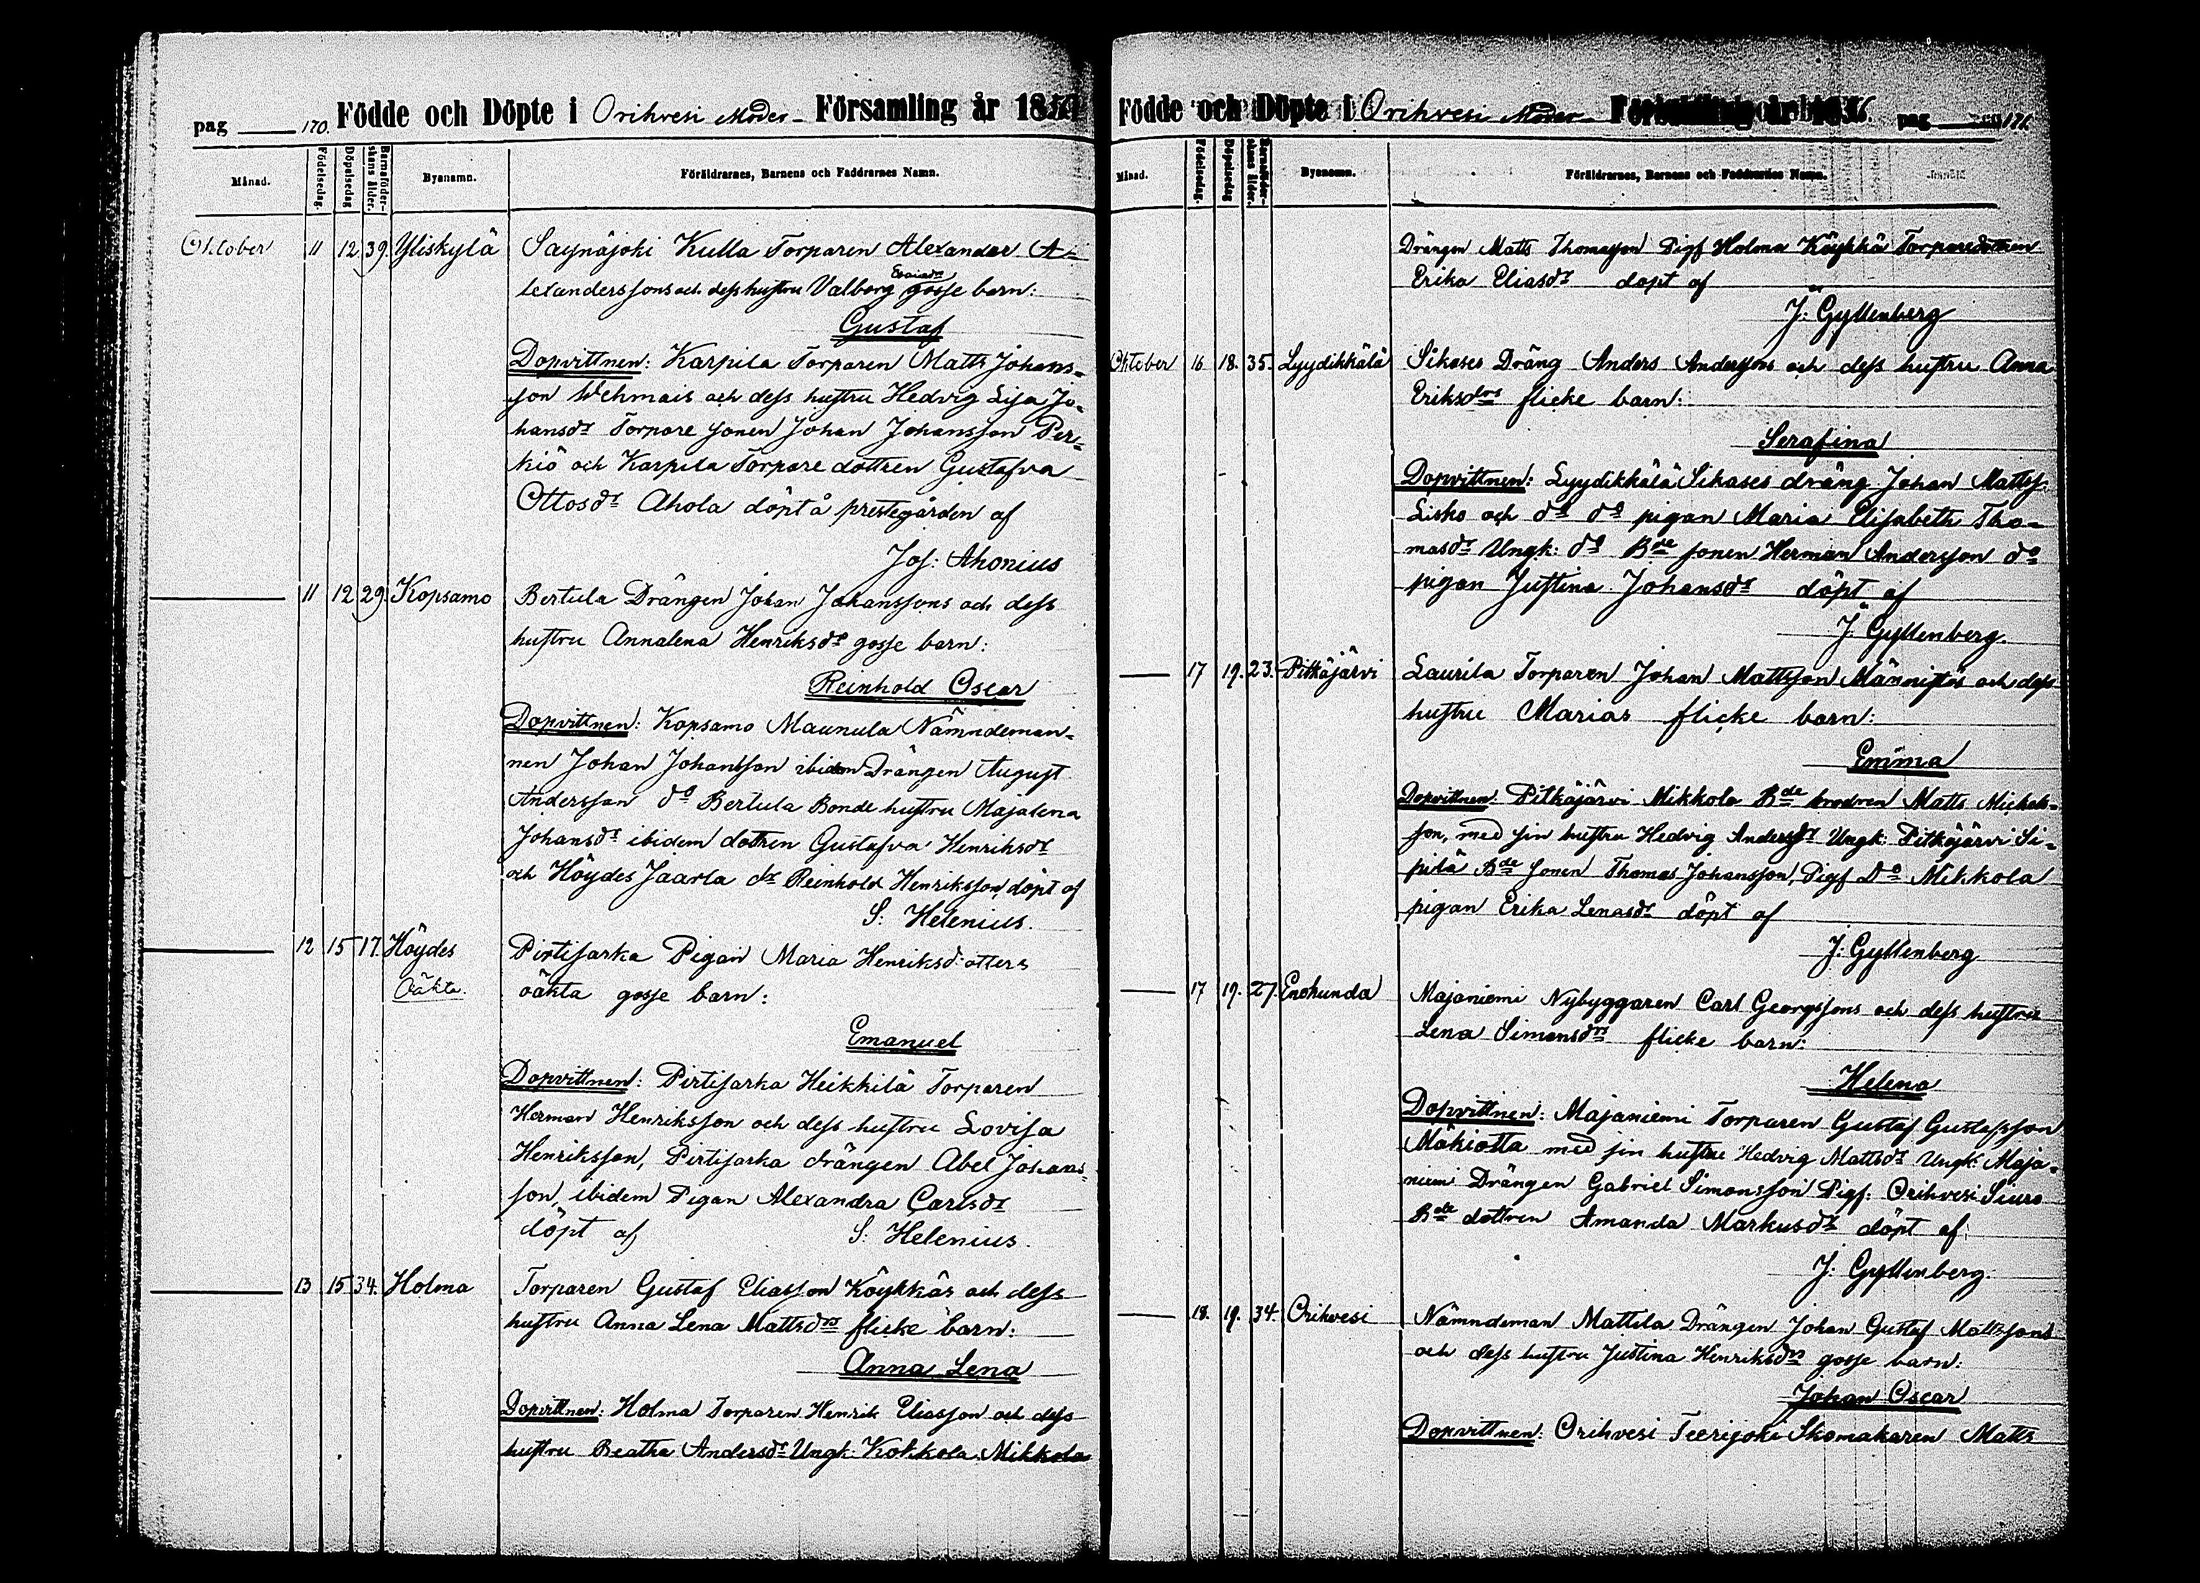 pag 170. Födde och Döpte i Orihvesi Moder- Församling år 185
Månad. Födelsedag. Döpelsedag Barnaföderskans ålder. Byanamn. Föräldrarnes, Barnens och Faddrarnes Namn.
Oktober 11 12 39. Yliskylä Saynäjoki Kulla Torparen Alexander A-
lexanderssons och dess hustru Valborg Esaiadr gosse barn:
Gustaf
Dopvittnen: Karpila Torparen Matts Johans-
son Wehmais och dess hustru Hedvig Lisa Jo-
hansdr Torpare sonen Johan Johansson Per-
kiö och Karpila Torpare dottren Gustafva
Ottosdr Ahola döpt å prestegården af
Jos: Ahonius
11 12 29. Kopsamo Bertula Drängen Johan Johanssons och dess
hustru Annalena Henriksdr gosse barn:
Reinhold Oscar
Dopvittnen: Kopsamo Maunula Nämndeman-
nen Johan Johansson ibidem Drängen August
Andersson do Bertula Bonde hustru Majalena
Johansdr ibidem dottren Gustafva Henriksdr
och Höydes Jaarla dr Reinhold Henriksson, döpt af
S: Helenius.
12 15 17. Höydes Pirtisarka Pigan Maria Henriksd:otters
Oäkta. oäkta gosse barn:
Emanuel
Dopvittnen: Pirtisarka Heikkilä Torparen
Herman Henriksson och dess hustru Lovisa
Henriksson, Pirtisarka drängen Abel Johans-
son, ibidem Pigan Alexandra Carlsdr
döpt af S: Helenius.
13 15 34. Holma Torparen Gustaf Eliasson Köykkäs och dess
hustru Anna Lena Mattsdrs flicke barn:
Anna Lena
Dopvittnen: Holma Torparen Henrik Eliasson och dess
hustru Beatha Andersdr Ungk: Kokkola Mikkola
Födde och Döpte i Orihvesi Moder- Församling år 185 pag 171.
Månad. Födelsedag. Döpelsedag Barnaföderskans ålder. Byanamn. Föräldrarnes, Barnens och Faddrarnes Namn.
Drängen Matts Thomasson Pigf Holma Köykkä Torparedottren
Erika Eliasdr döpt af
J: Gyllenberg
Oktober 16 18. 35. Lyydikkälä Sikases Dräng Anders Anderssons och dess hustru Anna
Eriksdrs flicke barn:
Serafina
Dopvittnen: Lyydikkälä Sikases dräng Johan Mattss.
Lisko och do do pigan Maria Elisabeth Tho-
masdr Ungk: do Bde sonen Herman Andersson do
pigan Justina Johansdr döpt af
J: Gyllenberg.
17 19. 23. Pitkäjärvi Laurila Torparen Johan Mattsson Männistös och dess
hustru Marias flicke barn:
Emma
Dopvittnen: Pitkäjärvi Mikkola Bde brodren Matts Michels-
son, med sin hustru Hedvig Andersdr Ungk: Pitkäjärvi Si-
pilä Bde sonen Thomas Johansson, Pigf Do Mikkola
pigan Erika Lenasdr döpt af
J: Gyllenberg
17 19. 27. Enokunda Majaniemi Nybyggaren Carl Georgssons och dess hustru
Lena Simonsdrs flicke barn:
Helena
Dopvittnen: Majaniemi Torparen Gustaf Gustafsson
Mäkiotta med sin hustru Hedvig Mattsdr Ungk: Maja-
niemi Drängen Gabriel Simonsson Pigf: Orihvesi Siuro
Bde dottren Amanda Markusdr döpt af.
J: Gyllenberg.
18. 19. 34. Orihvesi Nämndeman Mattila Drängen Johan Gustaf Mattssons
och dess hustru Justina Henriksdrs gosse barn:
Johan Oscar
Dopvittnen: Orihvesi Teerijoki Skomakaren Matts